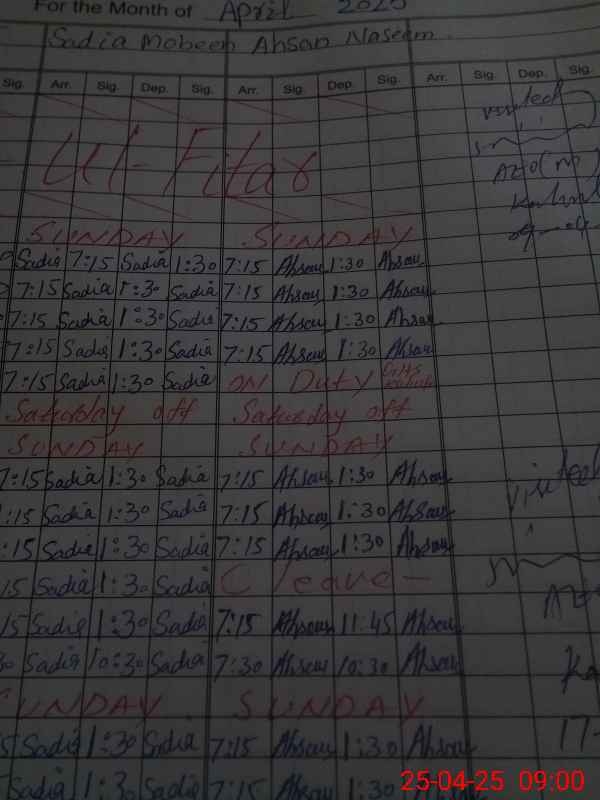 For the Month of April 2025
Sadia Mobeen Ahsan Naseem
Sig. Arr. Sig. Dep. Sig. Arr. Sig. Dep. Sig. Arr. Sig. Dep. Sig.
visited
Ul-Fitar
AEO(M)
SUNDAY SUNDAY
Sadia 7:15 Sadia 1:30 7:15 Ahsan 1:30 Ahsan
7:15 Sadia 1:30 Sadia 7:15 Ahsan 1:30 Ahsan
7:15 Sadia 1:30 Sadia 7:15 Ahsan 1:30 Ahsan
7:15 Sadia 1:30 Sadia 7:15 Ahsan 1:30 Ahsan
7:15 Sadia 1:30 Sadia ON Duty
Saturday off Saturday off
SUNDAY SUNDAY
7:15 Sadia 1:30 Sadia 7:15 Ahsan 1:30 Ahsan
:15 Sadia 1:30 Sadia 7:15 Ahsan 1:30 Ahsan
:15 Sadia 1:30 Sadia 7:15 Ahsan 1:30 Ahsan
15 Sadia 1:30 Sadia C leave -
15 Sadia 1:30 Sadia 7:15 Ahsan 11:45 Ahsan
30 Sadia 10:30 Sadia 7:30 Ahsan 10:30 Ahsan
SUNDAY SUNDAY
17-
15 Sadia 1:30 Sadia 7:15 Ahsan 1:30 Ahsan
Sadia 1:30 Sadia 7:15 Ahsan 1:30
25-04-25 09:00